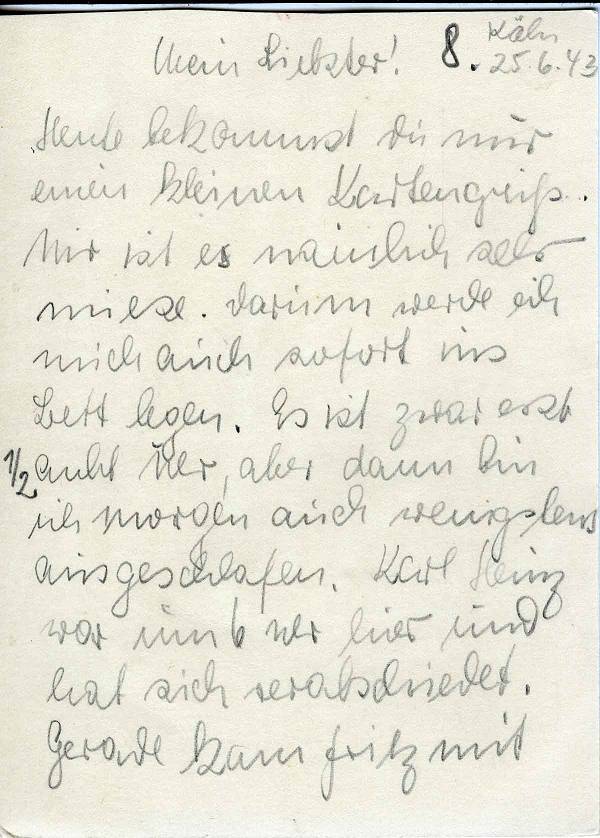 Köln
Mein Liebster! 8. 25.6.43
Heute bekommst du nur
einen kleinen Kartengruß.
Mir ist es nämlich sehr
miese. Darum werde ich
mich auch sofort ins
Bett legen. Es ist zwar erst
1/2 acht Uhr, aber dann bin
ich morgen auch wenigstens
ausgeschlafen. Karl Heinz
war um 6 Uhr hier und
hat sich verabschiedet.
Gerade kam Fritz mit